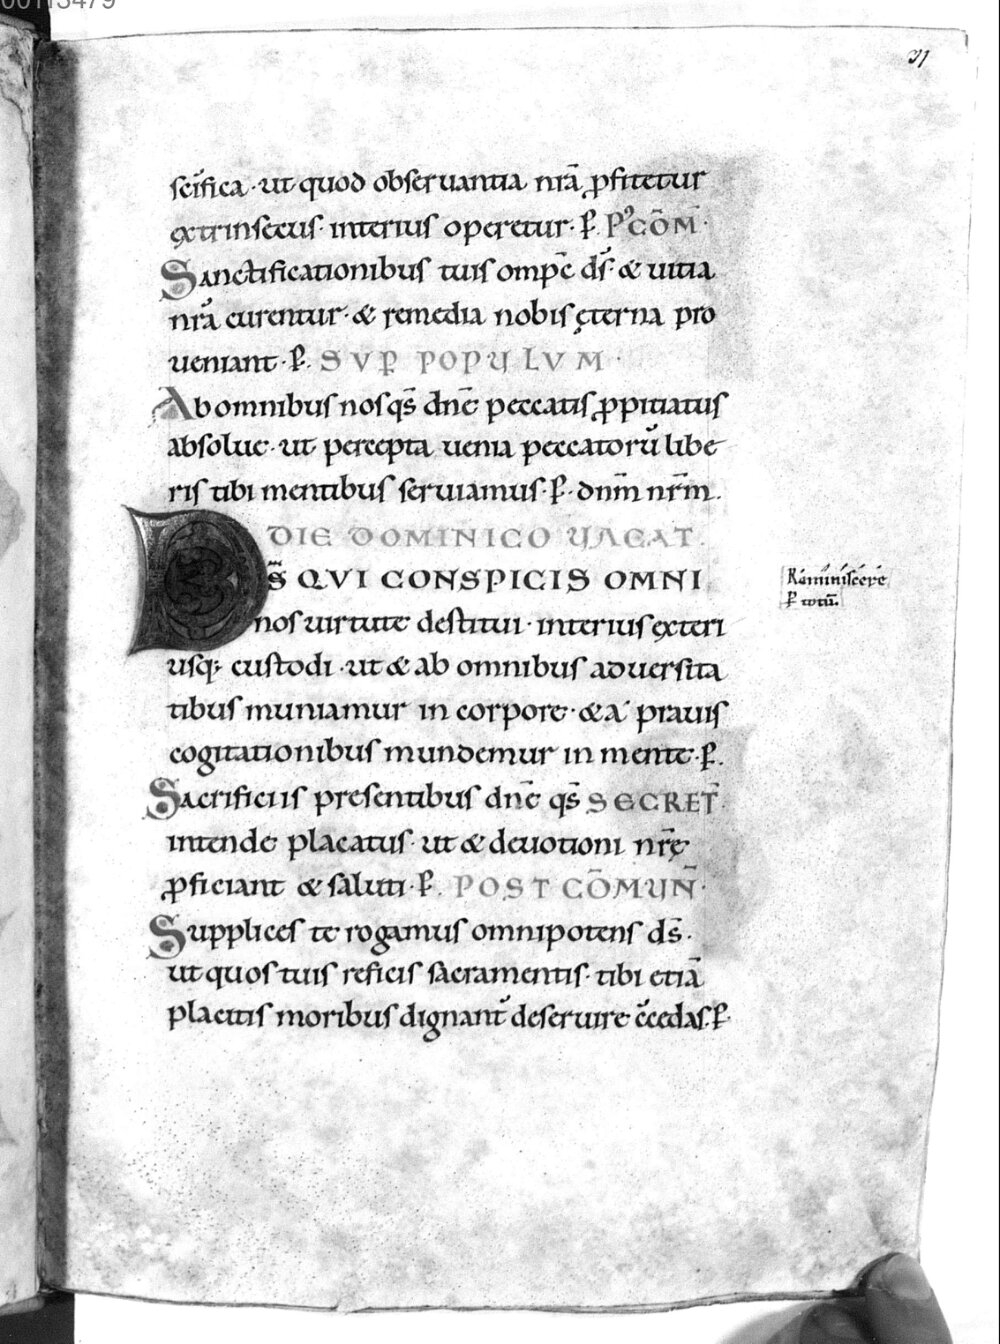 31
scifica · ut quod obseruantia nr̄a ꝓfitetur
extrinsecus · interius operetur · ꝑ. P' CŌM ·
Sanctificationibus tuis omp̄c ds̄ · & uitia
nr̄a curentur · & remedia nobis ęterna pro
ueniant · ꝑ. SVꝐ POPULVM ·
Ab omnibus nos qs̄ dn̄e peccatis ꝓpitiatus
absolue · ut percepta uenia peccatorū libe
ris tibi mentibus seruiamus · ꝑ · dnm̄ nr̄m.
DIE DOMINICO UACAT.
DS̄ QVI CONSPICIS OMNI
nos uirtute destitui · interius exteri
usq; custodi · ut & ab omnibus aduersita
tibus muniamur in corpore · & a prauis
cogitationibus mundemur in mente · ꝑ.
Sacrificiis presentibus dn̄e qs̄ SECRET̄.
intende placatus · ut & deuotioni nr̄ę
ꝓficiant & saluti · ꝑ. POST CŌMUN̄ ·
Supplices te rogamus omnipotens ds̄ ·
ut quos tuis reficis sacramentis · tibi etiā
placitis moribus dignant̄ deseruire c̄cedas · ꝑ.
Reminiscere
ꝑ totū.